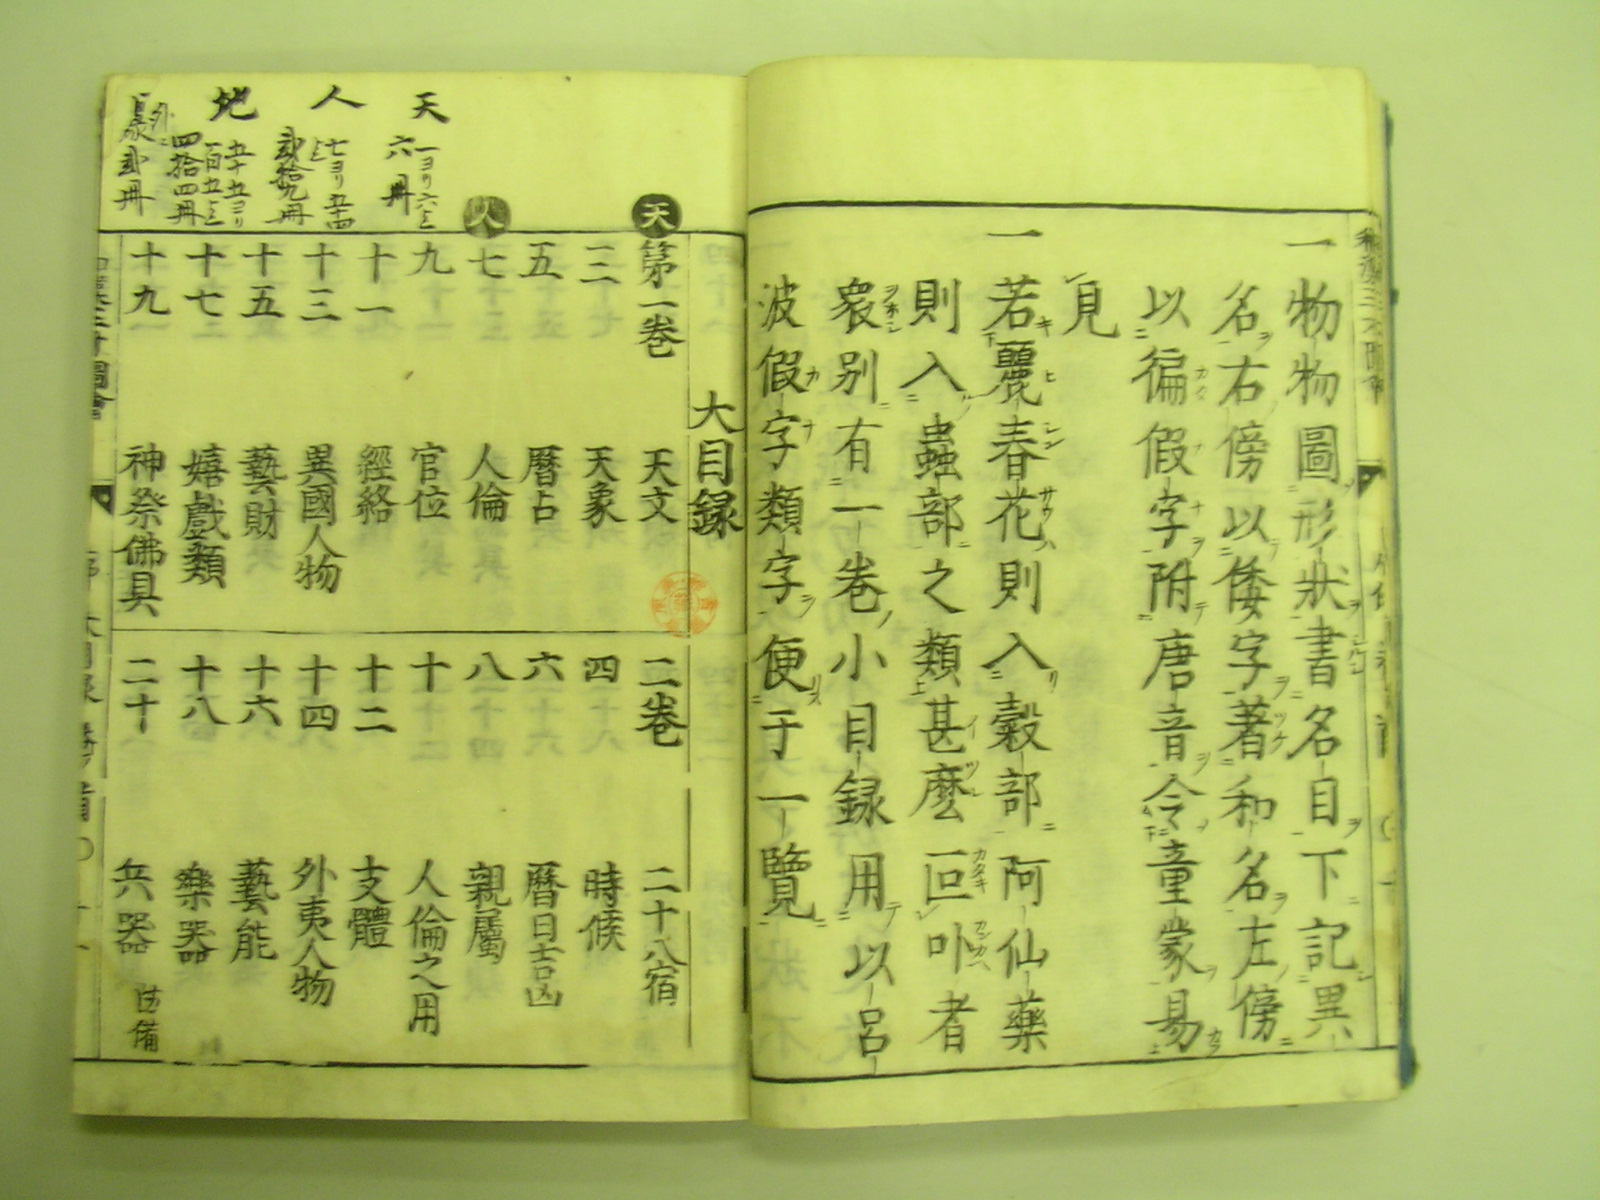 一物物圖形狀書名目下記異
名右傍以倭字著和名左傍
以徧假字附唐音令童蒙易
見
一若麗春花則入穀部阿仙藥
則入蟲部之類甚麽叵卟者
衆別有一卷小目録用以呂
波假字類字便于一覽
天 一ヨリ六迄 六冊
人 七ヨリ五十四迄 貳拾九冊
地 五十五ヨリ百五迄 四拾四冊
外ニ 貳冊
大目録
天
第一卷 天文 二卷 二十八宿
三 天象 四 時候
五 曆占 六 曆日吉凶
人
七 人倫 八 親屬
九 官位 十 人倫之用
十一 經絡 十二 支體
十三 異國人物 十四 外夷人物
十五 藝財 十六 藝能
十七 嬉戲類 十八 樂器
十九 神祭佛具 二十 兵器 防備